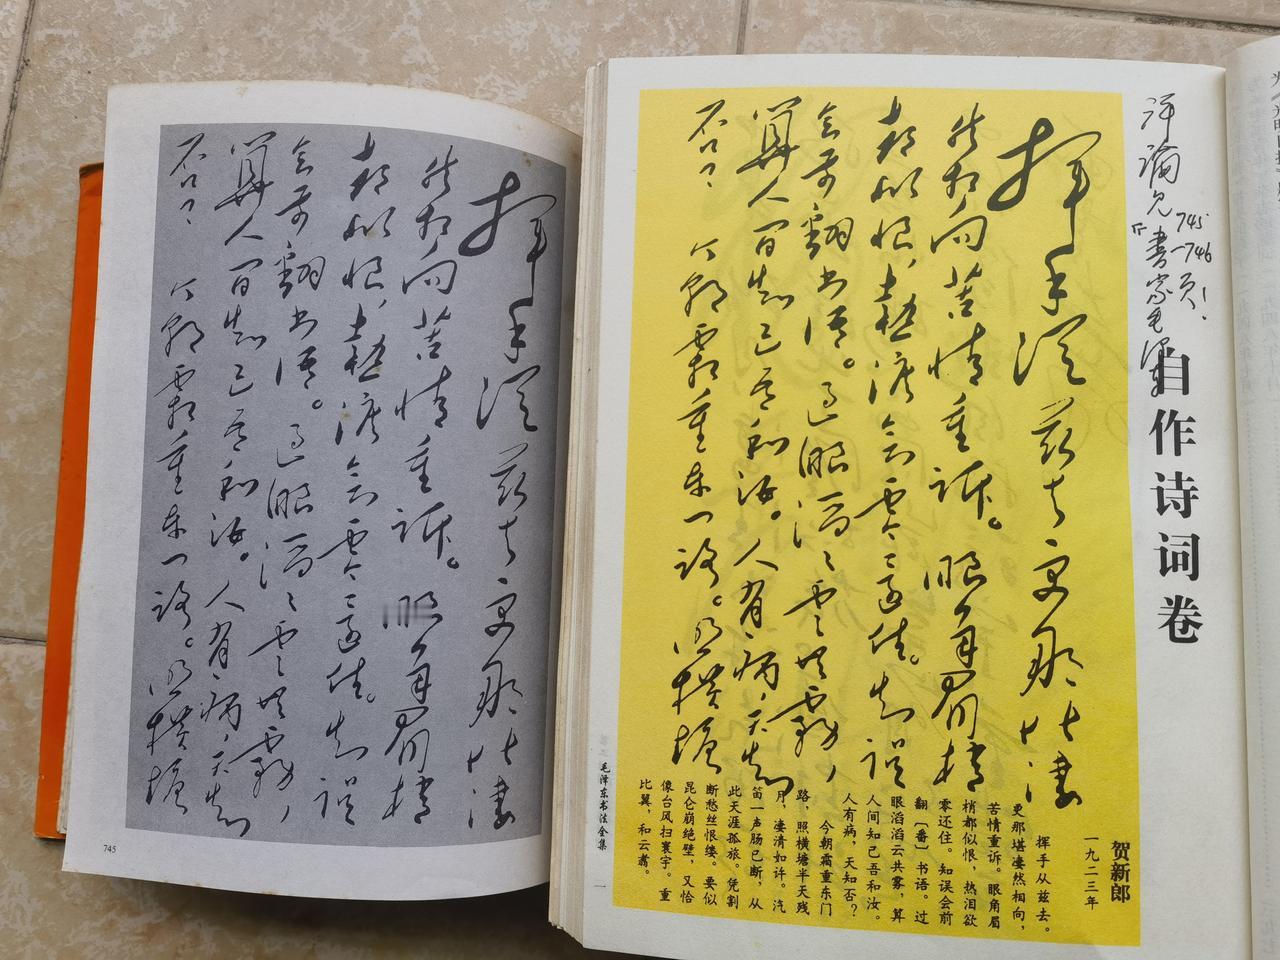 评论见
『书家毛泽东
745
—746页!
自作诗词卷
挥手从兹去更那堪凄
然相向苦情重诉。眼角眉梢
都似恨,热泪欲零还住。知误
会前翻书语。过眼滔滔云共雾,
算人间知己吾和汝。人有病天知
否?今朝霜重东门路。照横塘
贺新郎
一九二三年
挥手从兹去。
更那堪凄然相向,
苦情重诉。眼角眉
梢都似恨,热泪欲
零还住。知误会前
翻〔番〕书语。过
眼滔滔云共雾,算
人间知己吾和汝。
人有病,天知否?
今朝霜重东门
路,照横塘半天残
月,凄清如许。汽
笛一声肠已断,从
此天涯孤旅。凭割
断愁丝恨缕。要似
昆仑崩绝壁,又恰
像台风扫寰宇。重
比翼,和云翥。
毛泽东书法全集
一
挥手从兹去更那堪凄
然相向苦情重诉。眼角眉梢
都似恨,热泪欲零还住。知误
会前翻书语。过眼滔滔云共雾,
算人间知己吾和汝。人有病天知
否?今朝霜重东门路。照横塘
745